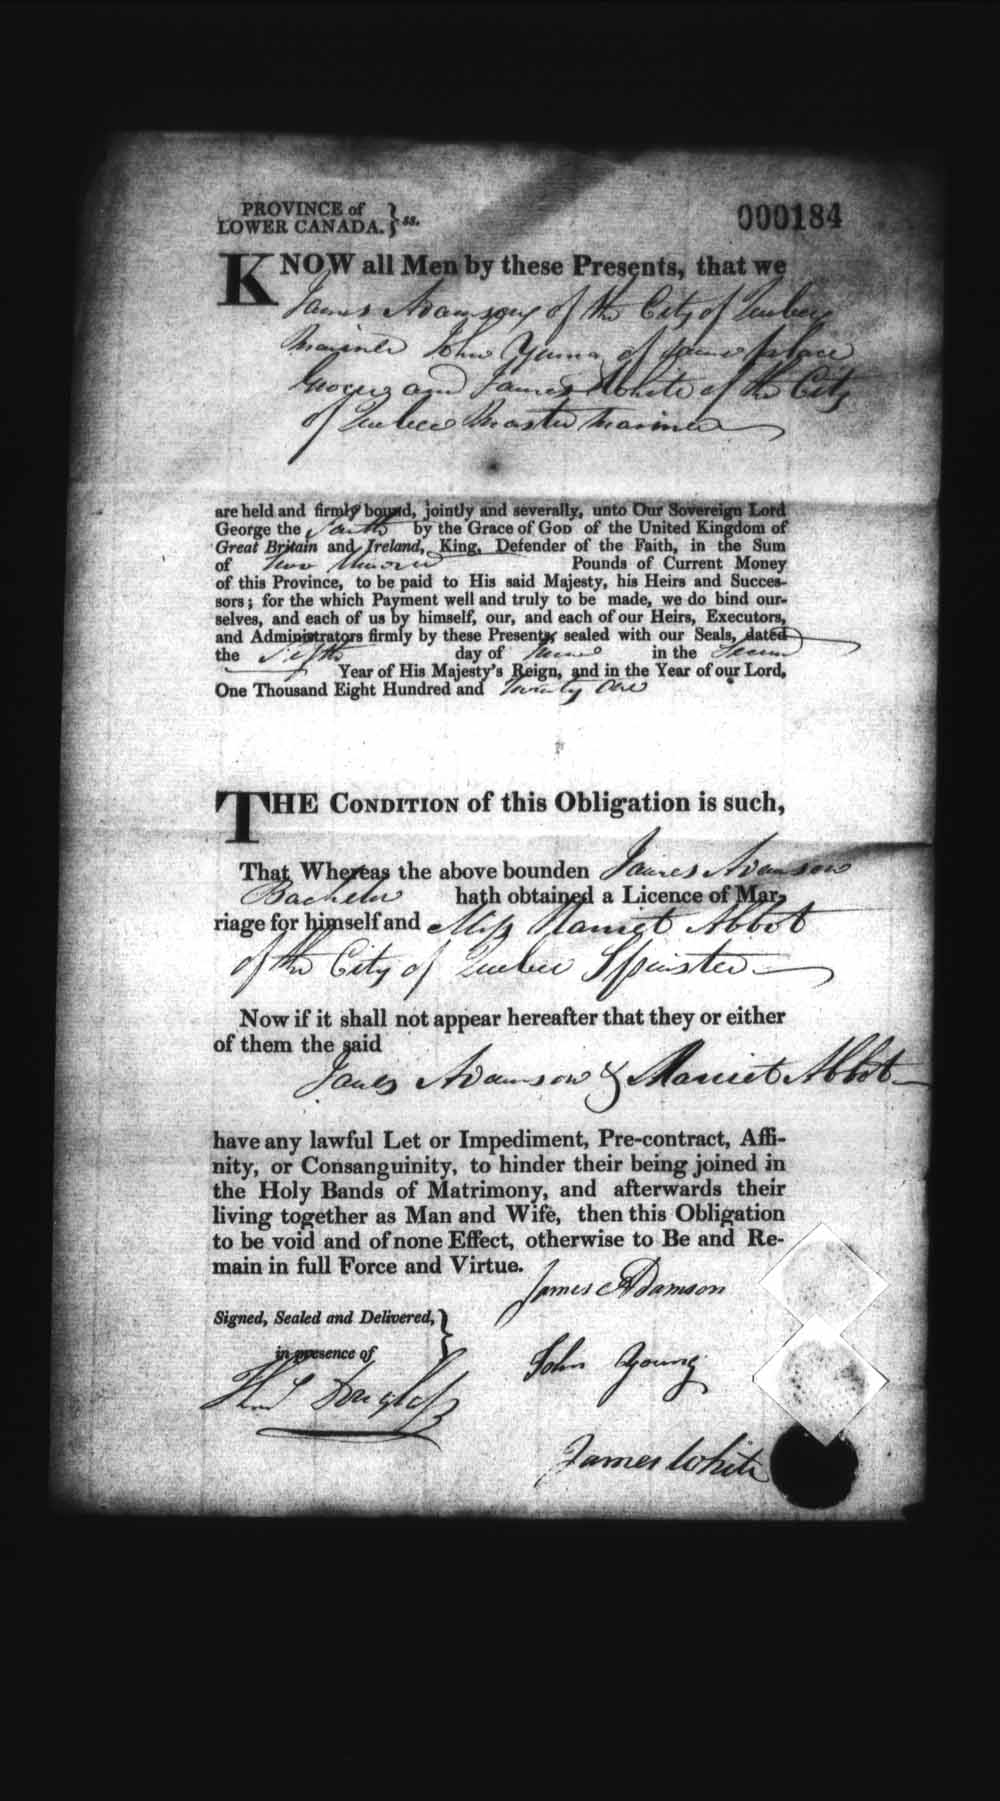 PROVINCE of
LOWER CANADA. } ss.
000184
KNOW all Men by these Presents, that we
James Adamson of the City of Quebec
Mariner John Young of same place
Grocer and James White of the City
of Quebec Master Mariner
are held and firmly bound, jointly and severally, unto Our Sovereign Lord
George the Fourth by the Grace of GOD of the United Kingdom of
Great Britain and Ireland, King, Defender of the Faith, in the Sum
of Two Hundred Pounds of Current Money
of this Province, to be paid to His said Majesty, his Heirs and Succes-
sors; for the which Payment well and truly to be made, we do bind our-
selves, and each of us by himself, our, and each of our Heirs, Executors,
and Administrators firmly by these Presents, sealed with our Seals, dated
the day of June in the Second
Year of His Majesty's Reign, and in the Year of our Lord,
One Thousand Eight Hundred and Twenty One
THE CONDITION of this Obligation is such,
That Whereas the above bounden James Adamson
Bachelor hath obtained a Licence of Mar-
riage for himself and Miss Harriet Abbot
of the City of Quebec Spinster
Now if it shall not appear hereafter that they or either
of them the said
James Adamson & Harriet Abbot
have any lawful Let or Impediment, Pre-contract, Affi-
nity, or Consanguinity, to hinder their being joined in
the Holy Bands of Matrimony, and afterwards their
living together as Man and Wife, then this Obligation
to be void and of none Effect, otherwise to Be and Re-
main in full Force and Virtue.
James Adamson
Signed, Sealed and Delivered, }
in presence of
John Young
Douglass
James White